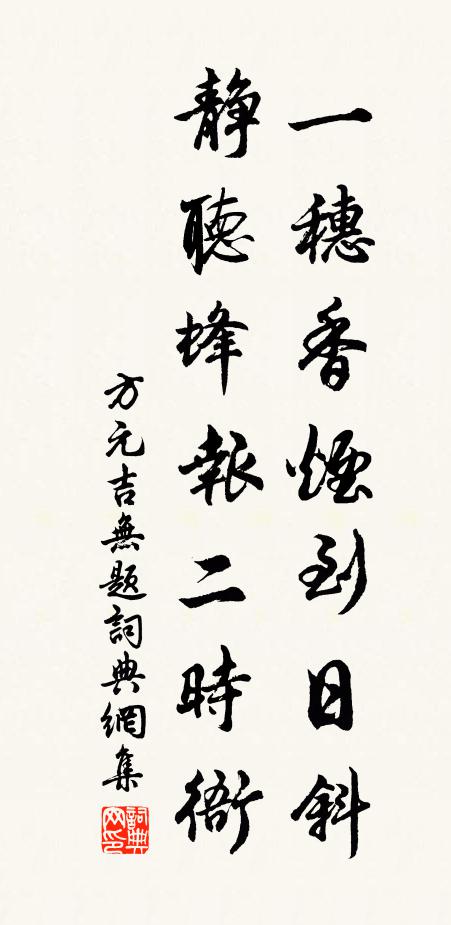 一穗香煙到日斜
靜聽蜂報二時衙
方元吉無題詞典網集
詞典
网印